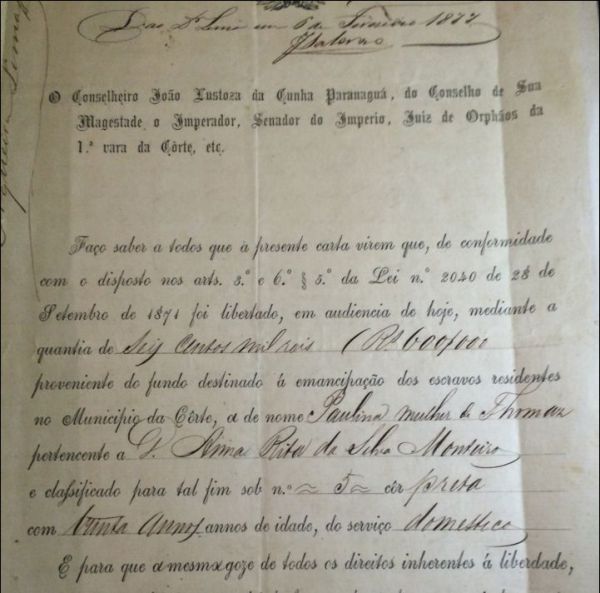 6 de Fevereiro 1877
O Conselheiro João Lustoza da Cunha Paranaguá, do Conselho de Sua
Magestade o Imperador, Senador do Imperio, Juiz de Orphãos da
1.ª vara da Côrte, etc.
Faço saber a todos que a presente carta virem que, de conformidade
com o disposto nos arts. 3.º e 6.º § 5.º da Lei n.º 2040 de 28 de
Setembro de 1871 foi libertado, em audiencia de hoje, mediante a
quantia de Seis centos mil reis (Rs 600$000
proveniente do fundo destinado á emancipação dos escravos residentes
no Município da Côrte, a de nome Paulina mulher de Thomaz
pertencente a D. Anna Rita da Silva Monteiro
e classificado para tal fim sob n.º 5 côr preta
com trinta annos annos de idade, do serviço domestico
E para que a mesma goze de todos os direitos inherentes á liberdade,